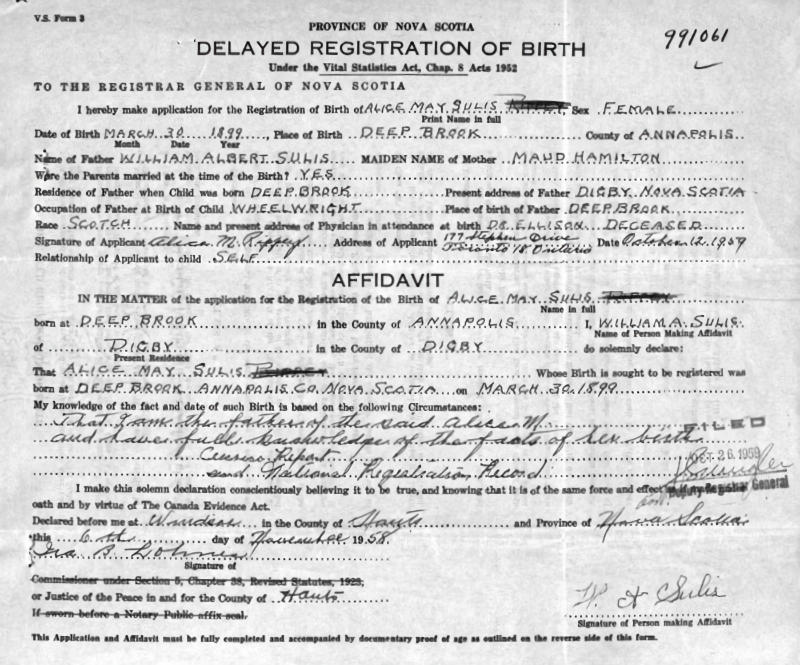 V.S. Form 3
PROVINCE OF NOVA SCOTIA
991061
DELAYED REGISTRATION OF BIRTH
Under the Vital Statistics Act, Chap. 8 Acts 1952
TO THE REGISTRAR GENERAL OF NOVA SCOTIA
I hereby make application for the Registration of Birth of ALICE MAY SULIS Sex FEMALE
Print Name in full
Date of Birth MARCH 30 1899, Place of Birth DEEP BROOK County of ANNAPOLIS
Month Date Year
Name of Father WILLIAM ALBERT SULIS MAIDEN NAME of Mother MAUD HAMILTON
Were the Parents married at the time of the Birth? YES
Residence of Father when Child was born DEEP BROOK Present address of Father DIGBY NOVA SCOTIA
Occupation of Father at Birth of Child WHEELWRIGHT Place of birth of Father DEEP BROOK
Race SCOTCH Name and present address of Physician in attendance at birth DR. ELLISON DECEASED
Signature of Applicant Alice M. Rippey Address of Applicant 177 Stephen Drive Toronto 18 Ontario Date October 12, 1959
Relationship of Applicant to child SELF
AFFIDAVIT
IN THE MATTER of the application for the Registration of the Birth of ALICE MAY SULIS RIPPEY
Name in full
born at DEEP BROOK in the County of ANNAPOLIS I, WILLIAM A. SULIS
Name of Person Making Affidavit
of DIGBY in the County of DIGBY do solemnly declare:
Present Residence
That ALICE MAY SULIS RIPPEY Whose Birth is sought to be registered was
born at DEEP BROOK ANNAPOLIS CO. NOVA SCOTIA on MARCH 30, 1899
My knowledge of the fact and date of such Birth is based on the following Circumstances:
That I am the father of the said Alice M.
and have full knowledge of the facts of her birth
FILED
Census Report
OCT 26 1959
and National Registration Record
Deputy Registrar General
I make this solemn declaration conscientiously believing it to be true, and knowing that it is of the same force and effect as if made under
oath and by virtue of The Canada Evidence Act.
Declared before me at Windsor in the County of Hants and Province of Nova Scotia
this 6th day of November 1958
Signature of
Commissioner under Section 5, Chapter 38, Revised Statutes, 1923,
or Justice of the Peace in and for the County of Hants
W. A Sulis
If sworn before a Notary Public affix seal.
Signature of Person making Affidavit
This Application and Affidavit must be fully completed and accompanied by documentary proof of age as outlined on the reverse side of this form.